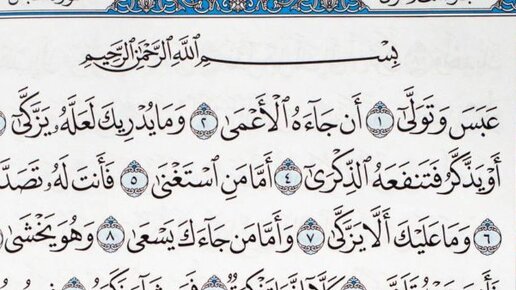 بِسْمِ ٱللَّهِ ٱلرَّحْمَٰنِ ٱلرَّحِيمِ
عَبَسَ وَتَوَلَّىٰٓ ١ أَن جَآءَهُ ٱلْأَعْمَىٰ ٢ وَمَا يُدْرِيكَ لَعَلَّهُۥ يَزَّكَّىٰٓ
أَوْ يَذَّكَّرُ فَتَنفَعَهُ ٱلذِّكْرَىٰٓ ٤ أَمَّا مَنِ ٱسْتَغْنَىٰ ٥ فَأَنتَ لَهُۥ تَصَدَّىٰ
٦ وَمَا عَلَيْكَ أَلَّا يَزَّكَّىٰ ٧ وَأَمَّا مَن جَآءَكَ يَسْعَىٰ ٨ وَهُوَ يَخْشَىٰ